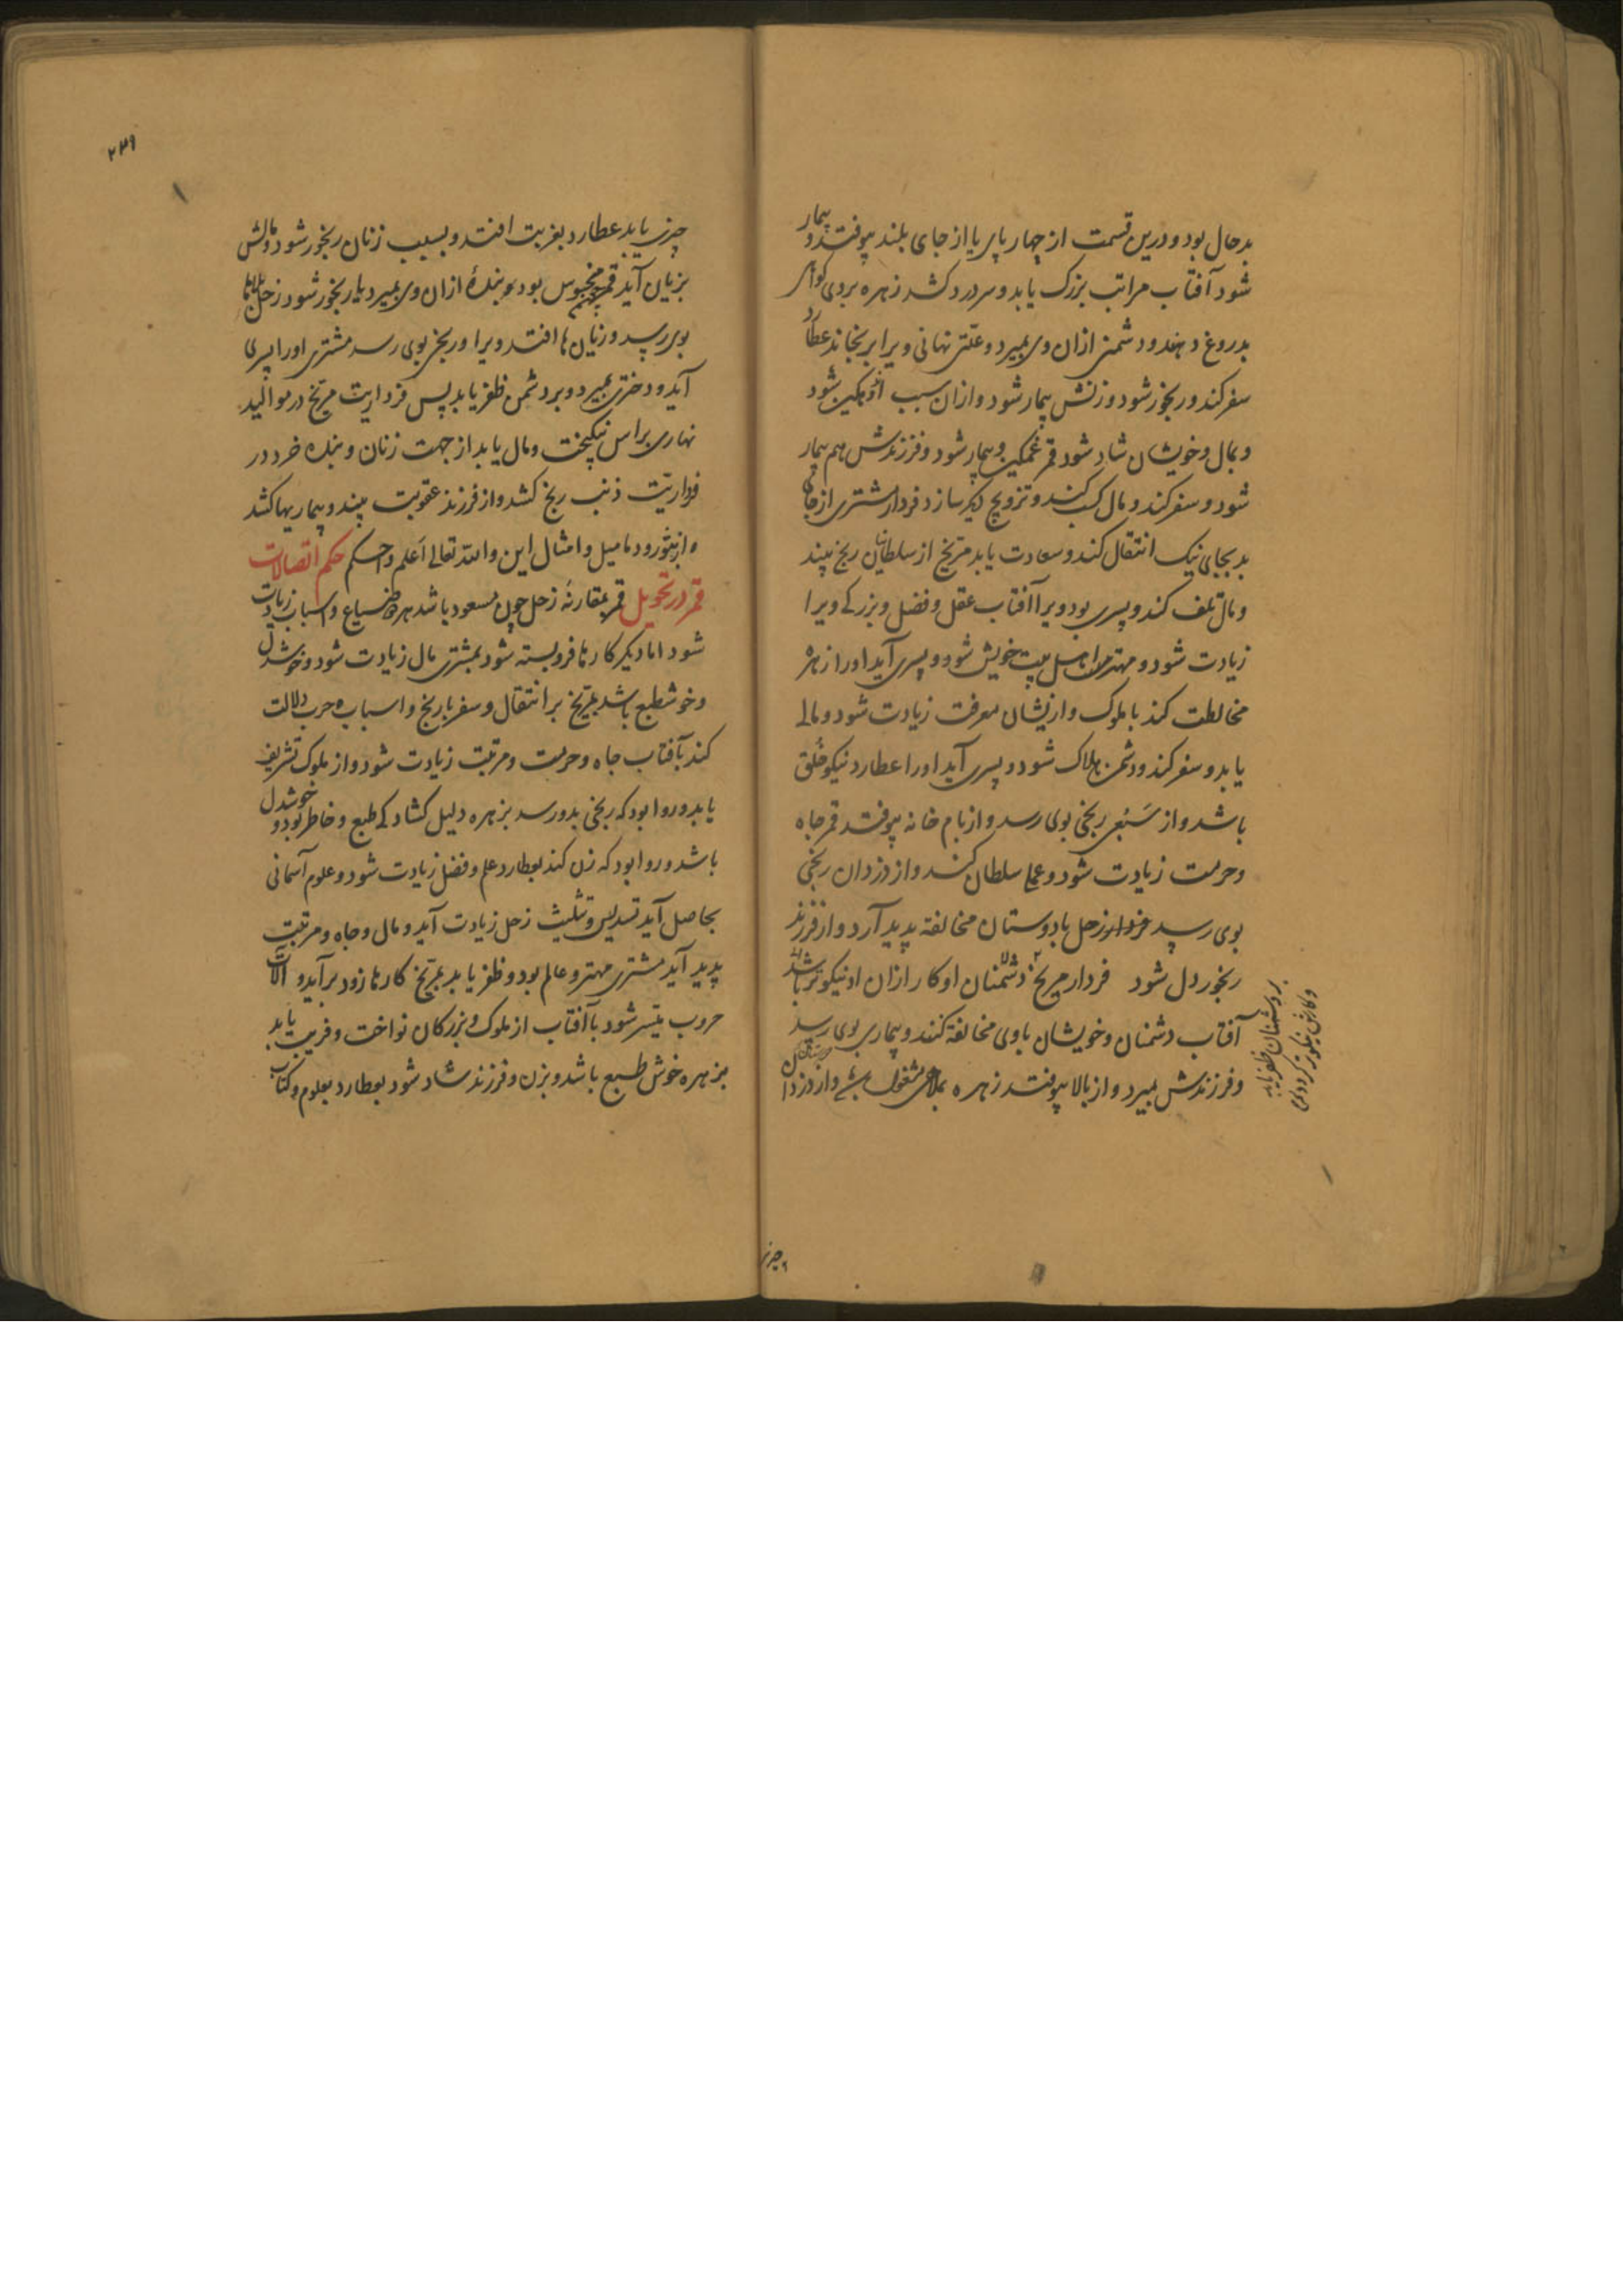 بدحال بود و درین قسمت از چهارپای یا از جای بلند بیوفتد و بیمار
شود آفتاب مراتب بزرک یابد و سر درد کشد زهره بروی کواهی
بدروغ دهند و دشمنی ازان وی بمیرد و علّتی نهانی ویرا برنجاند عطارد
سفر کند و رنجور شود و زنش بیمار شود و ازان سبب اندوهکین شود
و بمال و خویشان شاد شود قمر غمکین و بیمار شود و فرزندش هم بیمار
شود و سفر کند و مال کسب کند و تزویج دیکر سازد فردار مشتری از جای
بد بجای نیک انتقال کند و سعادت یابد مریخ از سلطان رنج بیند
و مال تلف کند و پسری بود ویرا آفتاب عقل و فضل و بزرکی ویرا
زیادت شود و مهتر اهل بیت خویش شود و پسری آید اورا زهره
مخالطت کند با ملوک و ازیشان معرفت زیادت شود و مالی
یابد و سفر کند و دشمن هلاک شود و پسری آید اورا عطارد نیکو خُلق
باشد و از سَبُعی رنجی بوی رسد و از بام خانه بیوفتد قمر جاه
و حرمت زیادت شود و عمل سلطان کند و از دزدان رنجی
بوی رسد فردار زحل با دوستان مخالفة پدید آرد و از فرزند
رنجور دل شود فردار مریخ دشمنان او کار ازان او نیکوتر باشد
آفتاب دشمنان و خویشان باوی مخالفة کنند و بیماری بوی رسد
و فرزندش بمیرد و از بالا بیوفتد زهره بملاهی مشغول و از دزدان
بر دشمنان ظفر یابد
و کارش نیکوتر کردد
چیزی
۲۳۹
چیزی یابد عطارد بغربت افتد و بسبب زنان رنجور شود و مالش
بزیان آید قمر محبوس بود و بندهٔ ازان وی بمیرد یا رنجور شود زحل
بوی رسد و زیان‌ها افتد ویرا و رنجی بوی رسد مشتری اورا پسری
آید و دختری بمیرد و بر دشمن ظفر یابد پس فرداریت مریخ در موالید
نهاری براس نیکبخت و مال یابد از جهت زنان و بنده خرد در
فرداریّت ذنب رنج کشد و از فرزند عقوبت بیند و بیماریها کشد
و از بثور و دمامیل و امثال این والله تعالی اعلم و احکم حکم اتصالات
قمر در تحویل قمر بمقارنهٔ زحل چون مسعود باشد ضیاع و اسباب زیادت
شود اما دیکر کارها فروبسته شود بمشتری مال زیادت شود و خوشدل
و خوشطبع باشد بمرّیخ بر انتقال و سفر با رنج و اسباب حرب دلالت
کند بآفتاب جاه و حرمت و مرتبت زیادت شود و از ملوک تشریف
یابد و روا بود که رنجی بدو رسد بزهره دلیل کشادکی طبع و خاطر بود و خوشدل
باشد و روا بود که زن کند بعطارد علم و فضل زیادت شود و علوم آسمانی
بحاصل آید تسدیس و تثلیث زحل زیادت آید و مال و جاه و مرتبت
پدید آید مشتری مهتر و عالم بود و ظفر یابد بمرّیخ کارها زود برآید و آلات
حروب میّسر شود بآفتاب از ملوک و بزرکان نواخت و قربت یابد
بزهره خوش طبع باشد و بزن و فرزند شاد شود بعطارد بعلوم و کتاب